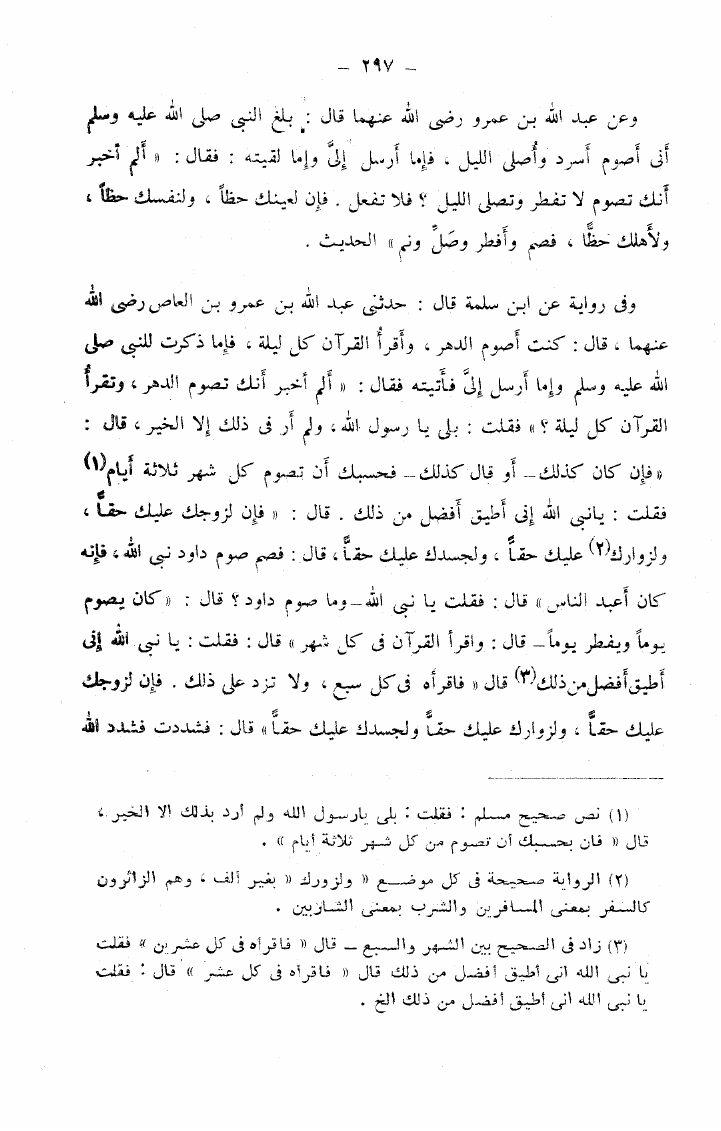 – ٢٩٧ –
وعن عبد الله بن عمرو رضى الله عنهما قال : بلغ النبى صلى الله عليه وسلم
أنى أصوم أسرد وأصلى الليل ، فإما أرسل إلىَّ وإما لقيته : فقال : « ألم أخبر
أنك تصوم لا تفطر وتصلى الليل ؟ فلا تفعل . فإن لعينك حظاً ، ولنفسك حظاً ،
ولأهلك حظًّا ، فصم وأفطر وصَلِّ ونم » الحديث .
وفى رواية عن ابن سلمة قال : حدثنى عبد الله بن عمرو بن العاص رضى الله
عنهما ، قال : كنت أصوم الدهر ، وأقرأ القرآن كل ليلة ، فإما ذكرت للنبى صلى
الله عليه وسلم وإما أرسل إلىَّ فأتيته فقال : « ألم أخبر أنك تصوم الدهر ، وتقرأ
القرآن كل ليلة ؟ » فقلت : بلى يا رسول الله ، ولم أر فى ذلك إلا الخير ، قال :
« فإن كان كذلك – أو قال كذلك – فحسبك أن تصوم كل شهر ثلاثة أيام (١)
فقلت : يانبى الله إنى أطيق أفضل من ذلك . قال : « فإن لزوجك عليك حقاًّ ،
ولزوارك (٢) عليك حقاًّ ، ولجسدك عليك حقاًّ ، قال : فصم صوم داود نبى الله ، فإنه
كان أعبد الناس » قال : فقلت يا نبى الله – وما صوم داود ؟ قال : « كان يصوم
يوماً ويفطر يوماً – قال : واقرأ القرآن فى كل شهر » قال : فقلت : يا نبى الله إنى
أطيق أفضل من ذلك (٣) قال « فاقرأه فى كل سبع ، ولا تزد على ذلك . فإن لزوجك
عليك حقاًّ ، ولزوارك عليك حقاًّ ولجسدك عليك حقاًّ » قال : فشددت فشدد الله
(١) نص صحيح مسلم : فقلت : بلى يارسول الله ولم أرد بذلك الا الخير ،
قال « فان بحسبك أن تصوم من كل شهر ثلاثة أيام » .
(٢) الرواية صحيحة فى كل موضع « ولزورك « بغير ألف ، وهم الزائرون
كالسفر بمعنى المسافرين والشرب بمعنى الشاربين .
(٣) زاد فى الصحيح بين الشهر والسبع – قال « فاقرأه فى كل عشرين » فقلت
يا نبى الله انى أطيق أفضل من ذلك قال « فاقرأه فى كل عشر » قال : فقلت
يا نبى الله انى أطيق أفضل من ذلك الخ .